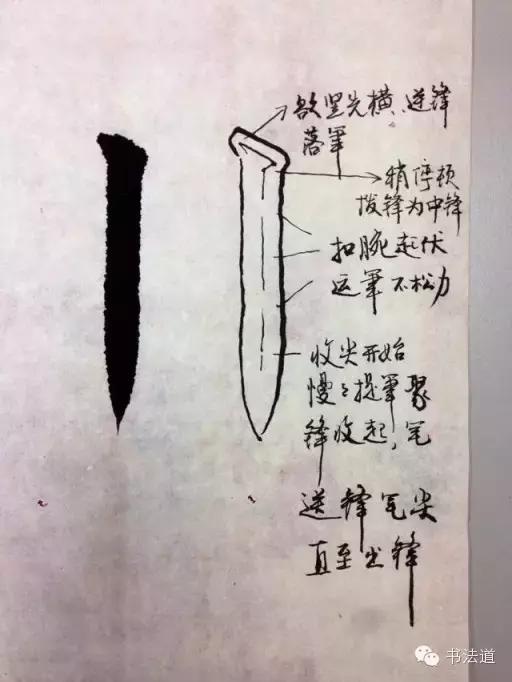 欲竖先横、逆锋
落筆
稍停顿
拨锋为中锋
扣腕起伏
运筆不松力
收尖开始
慢〻提筆聚
锋收起，笔
送锋笔尖
直至出锋
书法道